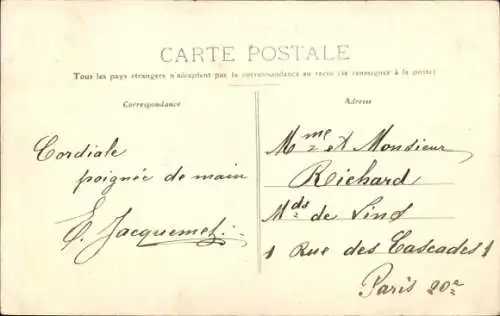 CARTE POSTALE
Tous les pays étrangers n'acceptent pas la correspondance au recto (se renseigner à la poste)
Correspondance
Adresse
Cordiale
poignée de main
E. Jacquemet
Mme et Monsieur
Richard
Mds de Vins
1 Rue des Cascades 1
Paris 20e